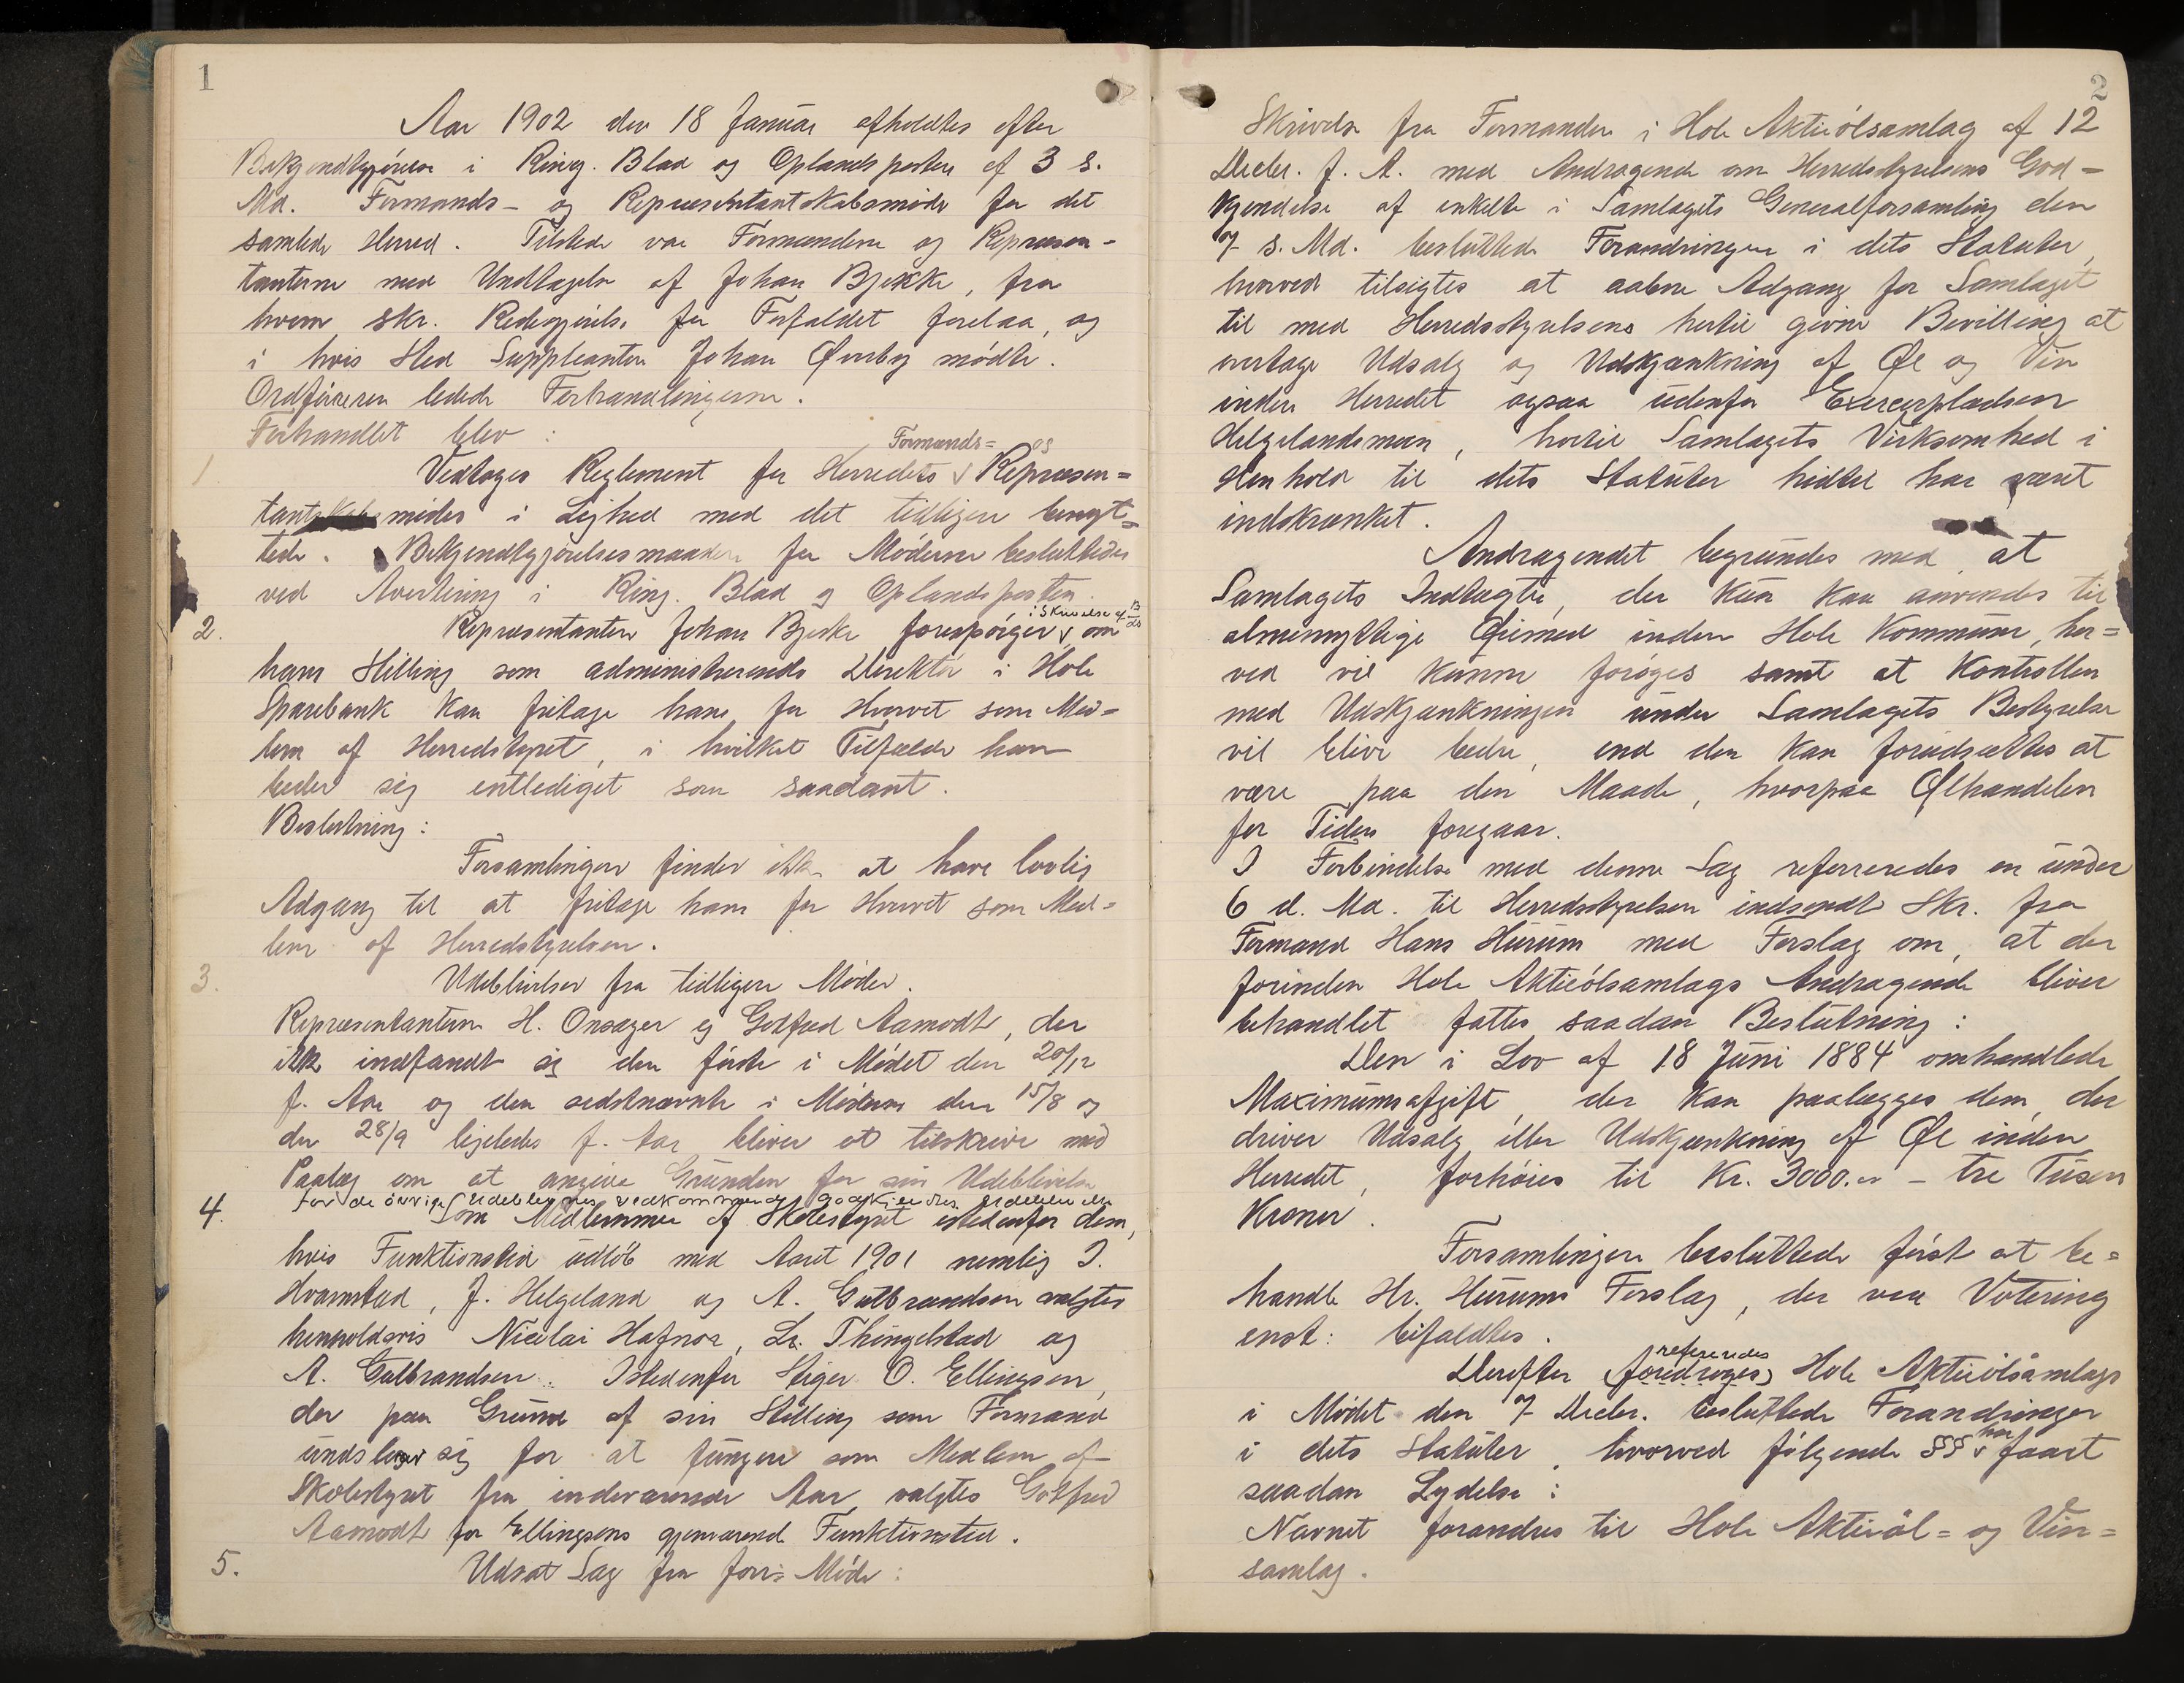 1
Aar 1902 den 18 Januar afholdtes efter
Bekjendtgjørelse i Ring. Blad og Oplandsposten af 3 s.
Md. Formands- og Repræsentantskabsmøde for det
samlede Herred. Tilstede var Formændene og Repræsen-
tanterne med Undtagelse af Johan Bjerke, fra
hvem skr. Redegjørelse for Forfaldet forelaa, og
i hvis Sted Suppleanten Johan Øverby mødte.
Ordføreren ledede Forhandlingerne.
Forhandlet blev:
1 Vedtoges Reglement for Herredets Formands= og Repræsen=
tantskabsmøder i Lighed med det tidligere benyt=
tede. Bekjendtgjørelsesmaaden for Møderne besluttedes
ved Avertering i Ring. Blad og Oplandsposten.
2. Repræsentanten Johan Bjerke forespørger i Skrivelse af om
hans Stilling som administrerende Direktør i Hole
Sparebank kan fritage ham for Hvervet som Med=
lem af Herredstyret, i hvilket Tilfælde han
beder sig entlediget som saadant.
Beslutning:
Forsamlingen finder ikke at have lovlig
Adgang til at fritage ham for Hvervet som Med=
lem af Herredstyrelsen.
3. Udeblivelser fra tidligere Møder.
Repræsentanterne H. Onsager og Gotfred Aamodt, der
ikke indfandt sig den første i Mødet den 20/12
f. Aar og den sidstnævnte i Møderne den 15/8 og
den 28/9 ligeledes f. Aar bliver at tilskrive med
Paalæg om at angive Grunden for sin Udeblivelse
For de øvrige Udeblevnes vedkommende godkjendtes Udeblivelsen
4. Som Medlemmer af Skolestyret istedenfor dem,
hvis Funktionstid udløb med Aaret 1901 nemlig I.
Hvamstad, J. Helgeland og A. Gulbrandsen valgtes
henholdsvis Nicolai Hafnor, Lr. Thingelstad og
A. Gulbrandsen. Istedenfor Stiger O. Ellingsen,
der paa Grund af sin Stilling som Formand
undslager sig for at fungere som Medlem af
Skolestyret fra indeværende Aar, valgtes Gotfred
Aamodt for Ellingsens gjenværende Funktionstid.
5. Udsat Sag fra forr: Møde:
2
Skrivelse fra Formanden i Hole Aktieølsamlag af 12
Decbr. f. A. med Andragende om Herredsstyrelsens God=
kjendelse af enkelte i Samlagets Generalforsamling den
7 s. Md. besluttede Forandringer i dets Statuter,
hvorved tilsigtes at aabne Adgang for Samlaget
til med Herredsstyrelsens hertil givne Bevilling at
overtage Udsalg og Udskjænkning af Øl og Vin
inden Herredet ogsaa udenfor Exercerpladsen
Helgelandsmoen, hvortil Samlagets Virksomhed i
Henhold til dets Statuter hidtil har været
indskrænket.
Andragendet begrundes med at
Samlagets Indtægter, der kun kan anvendes til
almennyttige Øiemed inden Hole Kommune, her=
ved vil kunne forøges samt at Kontrollen
med Udskjænkningen under Samlagets Bestyrelse
vil blive bedre, end den kan forudsættes at
være paa den Maade, hvorpaa Ølhandelen
for Tiden foregaar.
I Forbindelse med denne Sag refereredes en under
6 d. Md. til Herredsstyrelsen indsendt Skr. fra
Formand Hans Hurum med Forslag om, at der
forinden Hole Aktieølsamlags Andragende bliver
behandlet fattes saadan Beslutning:
Den i Lov af 18 Juni 1884 omhandlede
Maximumsafgift, der kan paalægges dem, der
driver Udsalg eller Udskjænkning af Øl inden
Herredet, forhøies til Kr. 3000.00 - tre Tusen
Kroner.
Forsamlingen besluttede først at be=
handle Hr. Hurums Forslag, der ved Votering
enst: bifaldtes.
Derefter (foredroges) refereredes Hole Aktieølsamlags
i Mødet den 7 Decbr. besluttede Forandringer
i dets Statuter, hvorved følgende §§ har faaet
saadan Lydelse:
Navnet forandres til Hole Aktieøl= og Vin=
samlag.